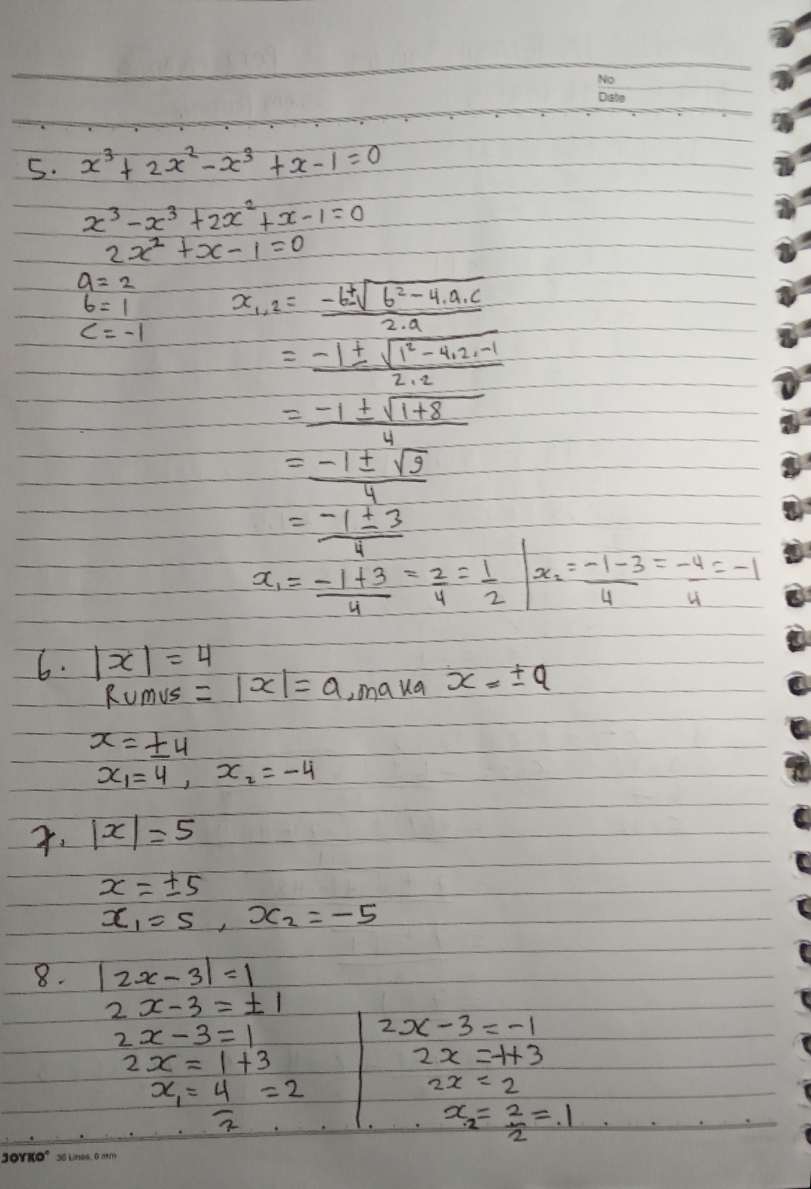 No
Date
5. x³ + 2x² - x³ + x - 1 = 0
x³ - x³ + 2x² + x - 1 = 0
2x² + x - 1 = 0
a = 2
b = 1
c = -1
x₁,₂ = (-b ± √(b² - 4.a.c))/(2.a)
= (-1 ± √(1² - 4.2.-1))/(2.2)
= (-1 ± √(1+8))/4
= (-1 ± √9)/4
= (-1 ± 3)/4
x₁ = (-1+3)/4 = 2/4 = 1/2 | x₂ = (-1-3)/4 = -4/4 = -1
6. |x| = 4
Rumus = |x| = a, maka x = ±a
x = ±4
x₁ = 4, x₂ = -4
7. |x| = 5
x = ±5
x₁ = 5, x₂ = -5
8. |2x - 3| = 1
2x - 3 = ±1
2x - 3 = 1
2x = 1 + 3
x₁ = 4/2 = 2
2x - 3 = -1
2x = -1+3
2x = 2
x₂ = 2/2 = 1
JOYKO® 36 Lines, 6 mm